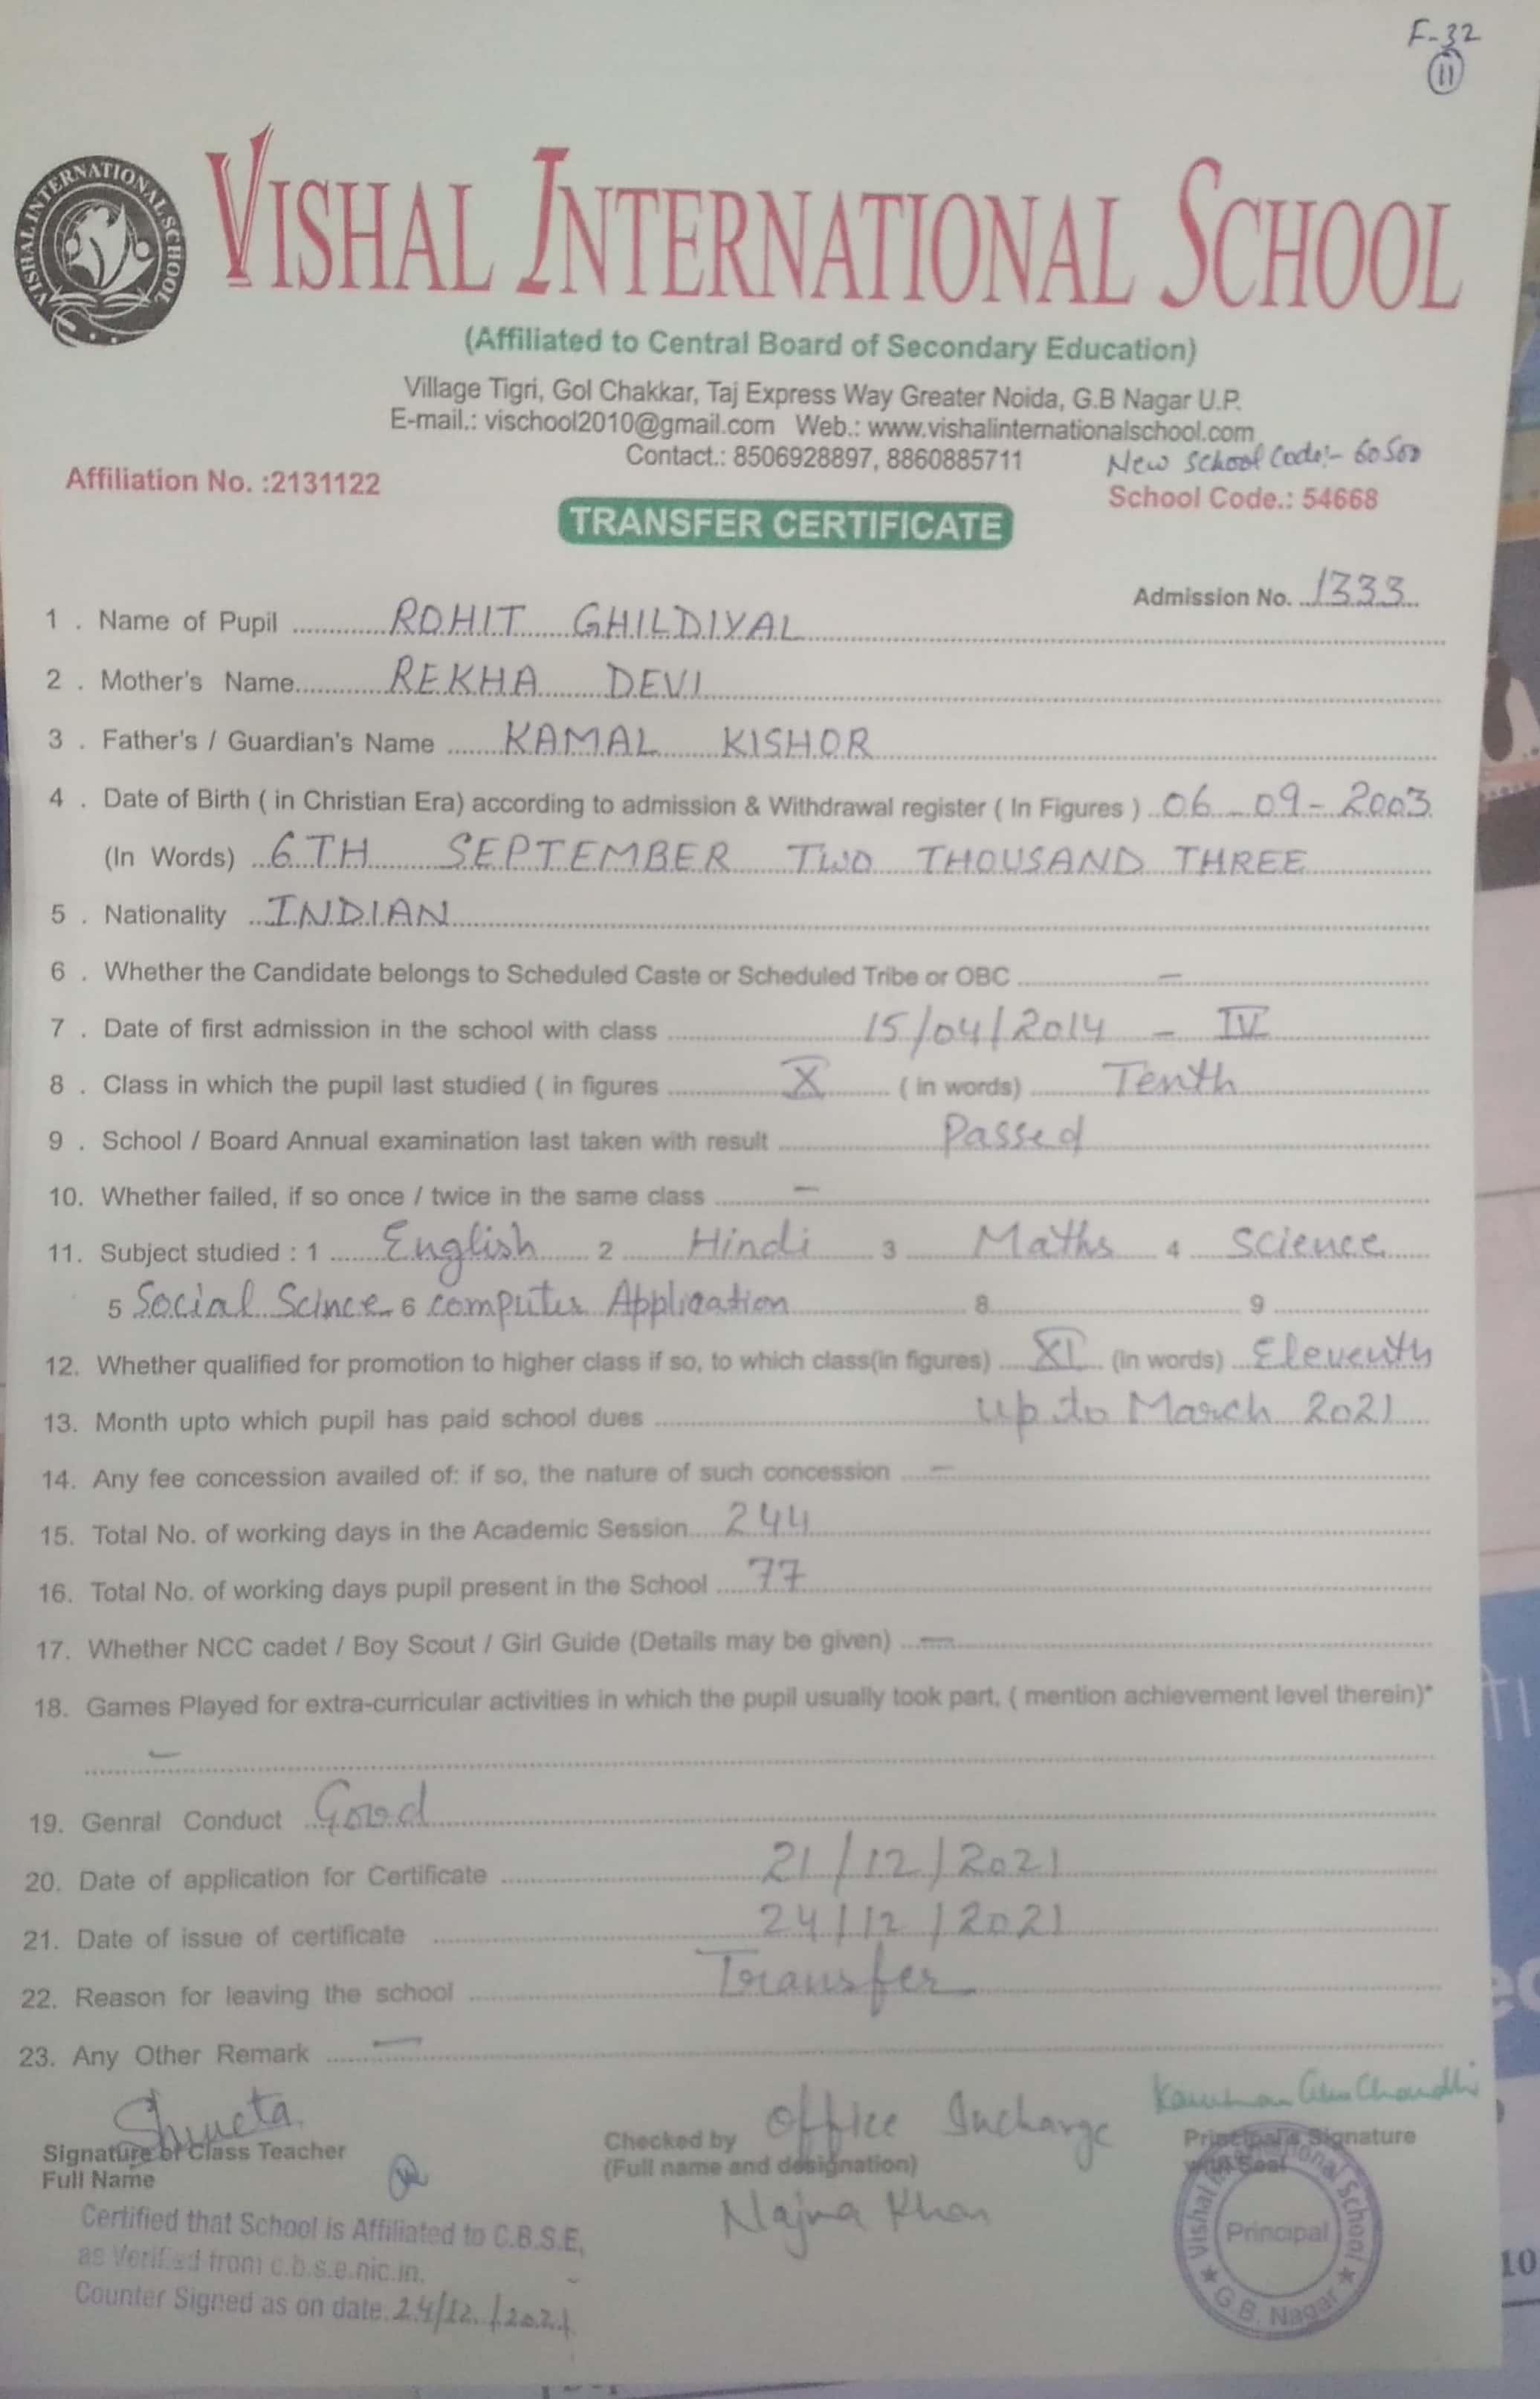 F-32
11
VISHAL INTERNATIONAL SCHOOL
VISHAL INTERNATIONAL SCHOOL
(Affiliated to Central Board of Secondary Education)
Village Tigri, Gol Chakkar, Taj Express Way Greater Noida, G.B Nagar U.P.
E-mail.: vischool2010@gmail.com Web.: www.vishalinternationalschool.com
Contact.: 8506928897, 8860885711
New School Code:- 60500
Affiliation No. :2131122
School Code.: 54668
TRANSFER CERTIFICATE
Admission No. 1333
1 . Name of Pupil ROHIT GHILDIYAL
2 . Mother's Name REKHA DEVI
3 . Father's / Guardian's Name KAMAL KISHOR
4 . Date of Birth ( in Christian Era) according to admission & Withdrawal register ( In Figures ) 06-09-2003
(In Words) 6TH SEPTEMBER TWO THOUSAND THREE
5 . Nationality INDIAN
6 . Whether the Candidate belongs to Scheduled Caste or Scheduled Tribe or OBC —
7 . Date of first admission in the school with class 15/04/2014 - IV
8 . Class in which the pupil last studied ( in figures X ( in words) Tenth
9 . School / Board Annual examination last taken with result Passed
10. Whether failed, if so once / twice in the same class —
11. Subject studied : 1 English 2 Hindi 3 Maths 4 Science
5 Social Scince 6 computer Application 8 9
12. Whether qualified for promotion to higher class if so, to which class(in figures) XI (in words) Eleventh
13. Month upto which pupil has paid school dues up to March 2021
14. Any fee concession availed of: if so, the nature of such concession —
15. Total No. of working days in the Academic Session 244
16. Total No. of working days pupil present in the School 77
17. Whether NCC cadet / Boy Scout / Girl Guide (Details may be given) —
18. Games Played for extra-curricular activities in which the pupil usually took part, ( mention achievement level therein)*
—
19. Genral Conduct Good
20. Date of application for Certificate 21/12/2021
21. Date of issue of certificate 24/12/2021
22. Reason for leaving the school Transfer
23. Any Other Remark —
Shweta
Signature of Class Teacher
Full Name
Checked by Office Incharge
(Full name and designation)
Najma Khan
Principal's Signature
with Seal
Vishal International School
Principal
★ G.B. Nagar ★
Certified that School is Affiliated to C.B.S.E,
as Verified from c.b.s.e.nic.in.
Counter Signed as on date. 24/12/2021
10